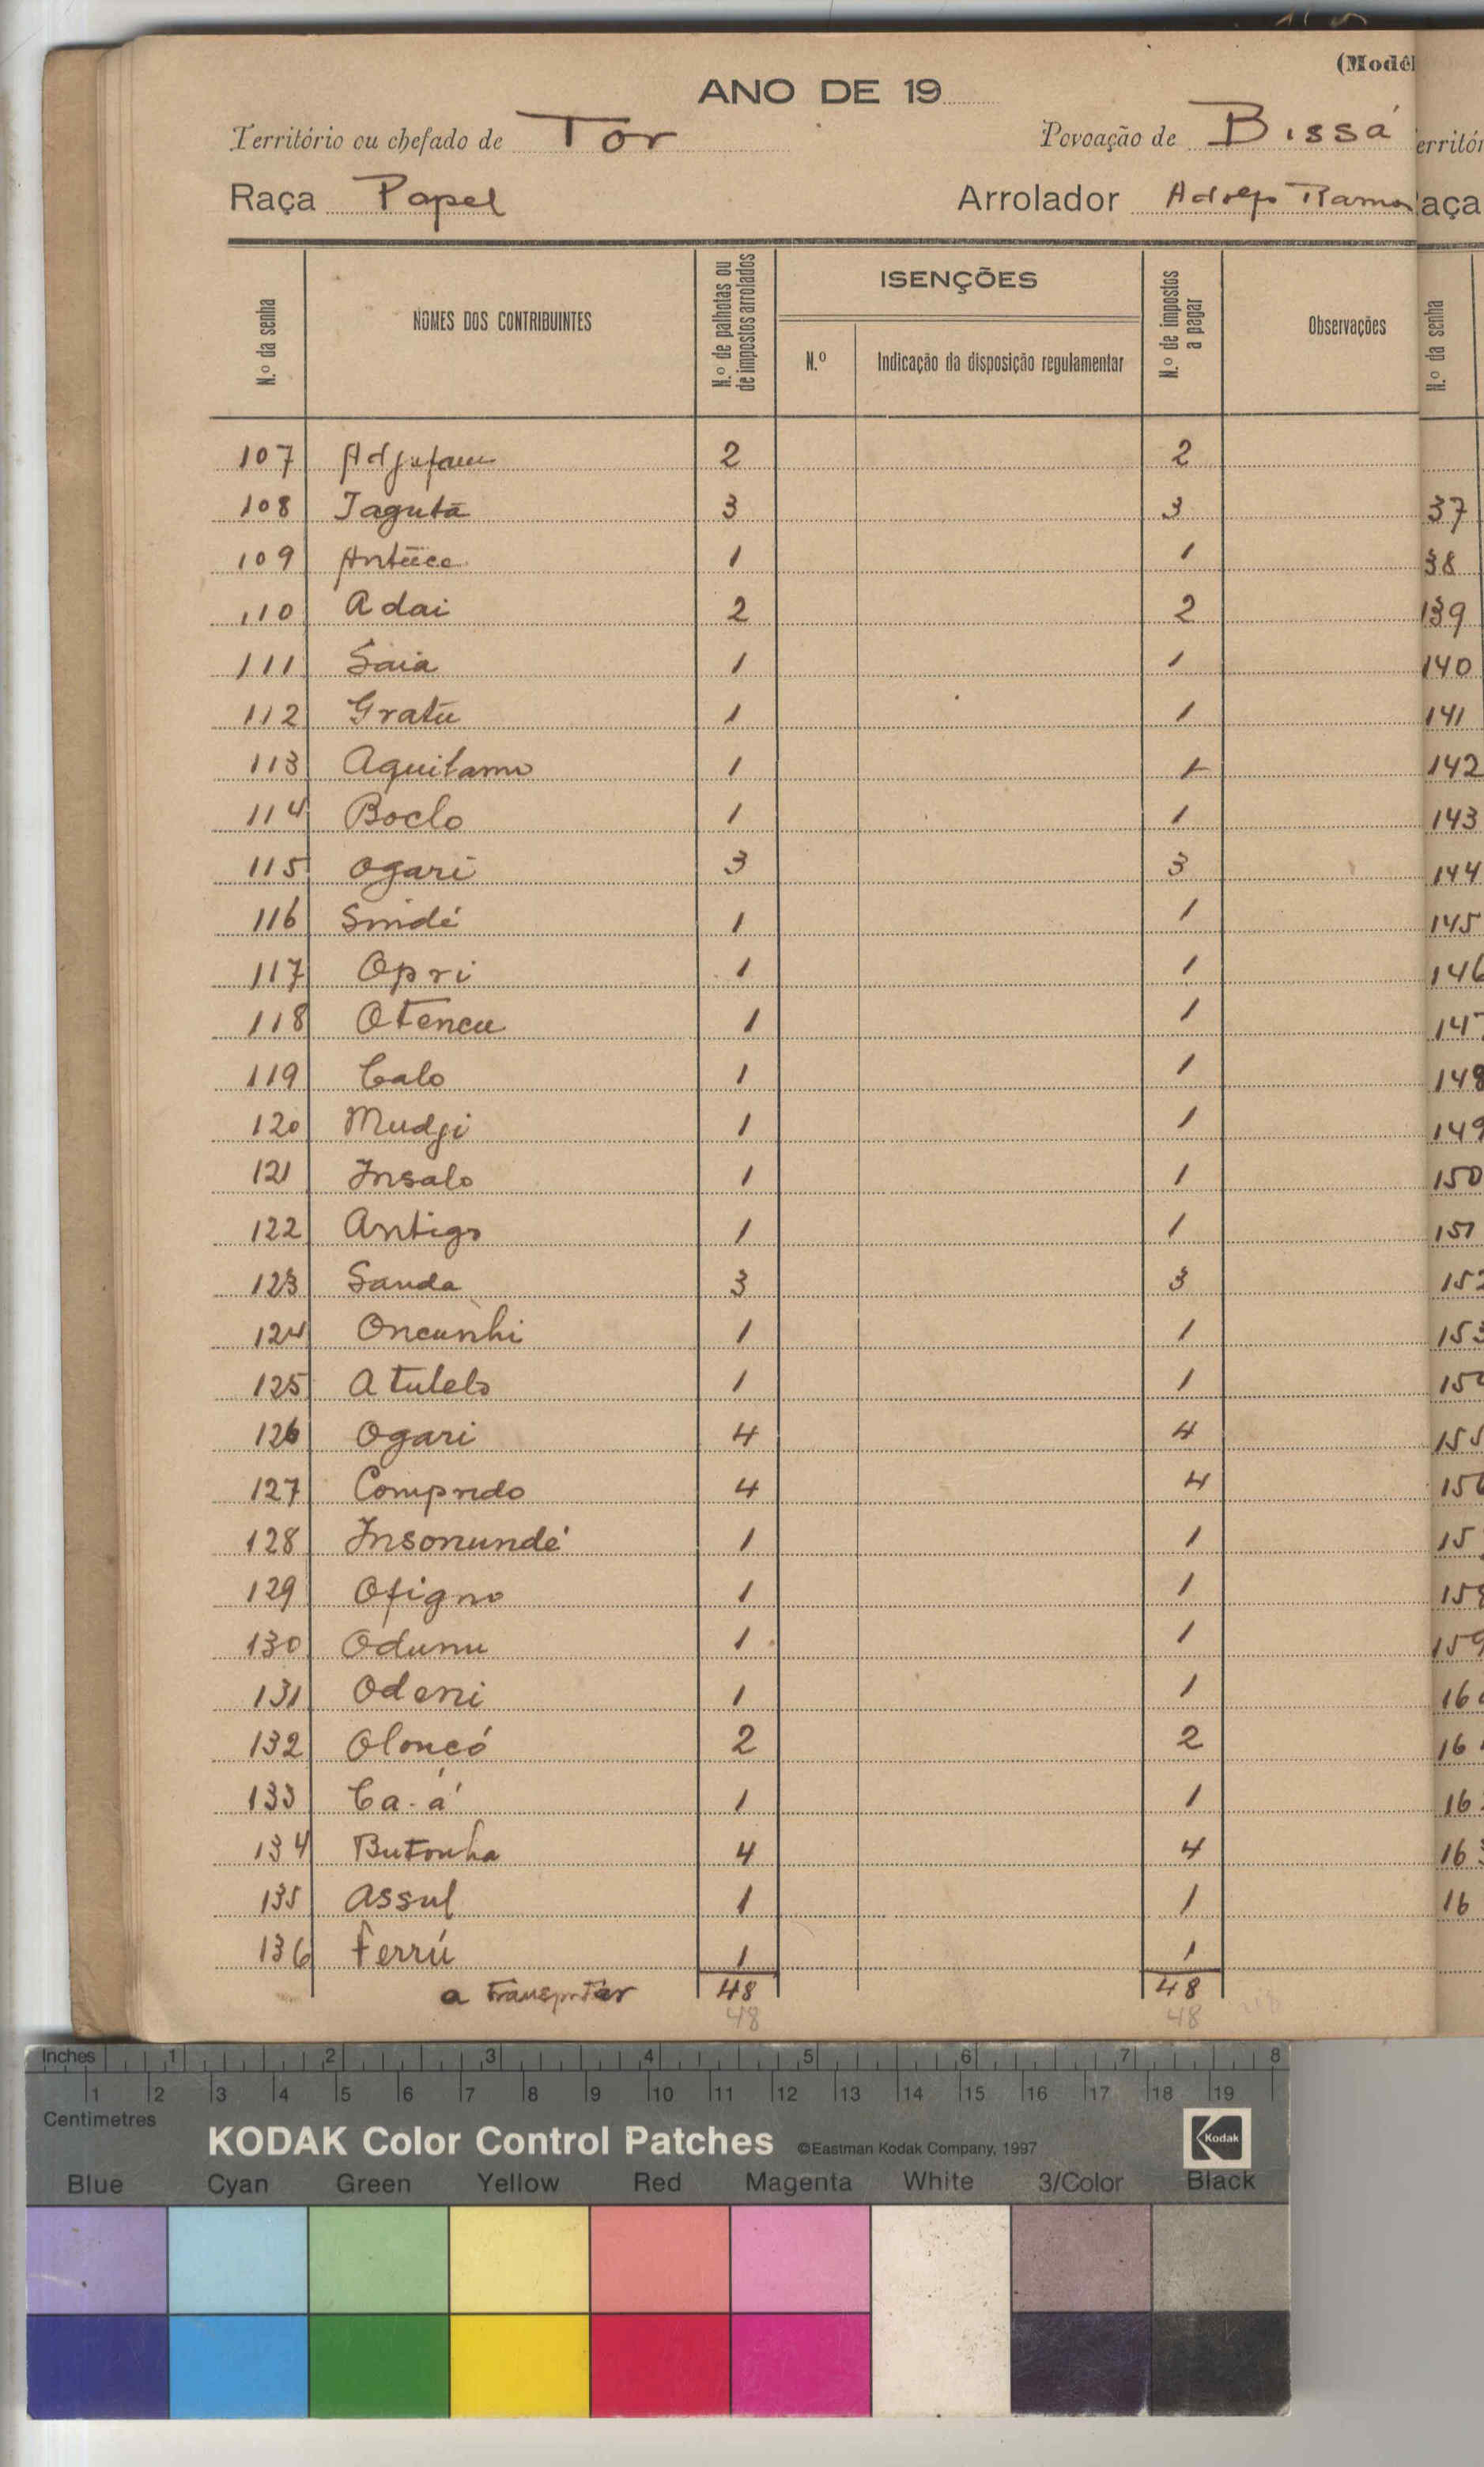 (Modêl
ANO DE 19
Território ou chefado de Tor Povoação de Bissá
Raça Papel Arrolador Adolfo Ramos
N.º da senha
NOMES DOS CONTRIBUINTES
N.º de palhotas ou de impostos arrolados
ISENÇÕES
N.º
Indicação da disposição regulamentar
N.º de impostos a pagar
Observações
107 2 2
108 Jagutá 3 3
109 Antúce 1 1
110 Adai 2 2
111 Saia 1 1
112 Gratú 1 1
113 Aquitamo 1 1
114 Boclo 1 1
115 Ogari 3 3
116 Sindé 1 1
117 Opri 1 1
118 Otencu 1 1
119 Calo 1 1
120 Mudji 1 1
121 Insalo 1 1
122 Antigo 1 1
123 Sanda 3 3
124 Oncunhi 1 1
125 Atulelo 1 1
126 Ogari 4 4
127 Comprido 4 4
128 Insonundé 1 1
129 Ofigno 1 1
130 Odunu 1 1
131 Odeni 1 1
132 Olonçó 2 2
133 Ca-á 1 1
134 Butonha 4 4
135 Assul 1 1
136 Ferrú 1 1
a transportar 48 48
48 48
erritór
aça
N.º da senha
37
38
139
140
141
142
143
144
145
146
147
148
149
150
151
152
153
154
155
156
15
158
159
16
16
16
163
16
Inches 1 2 3 4 5 6 7 8
1 2 3 4 5 6 7 8 9 10 11 12 13 14 15 16 17 18 19
Centimetres
KODAK Color Control Patches ©Eastman Kodak Company, 1997 Kodak
Blue Cyan Green Yellow Red Magenta White 3/Color Black